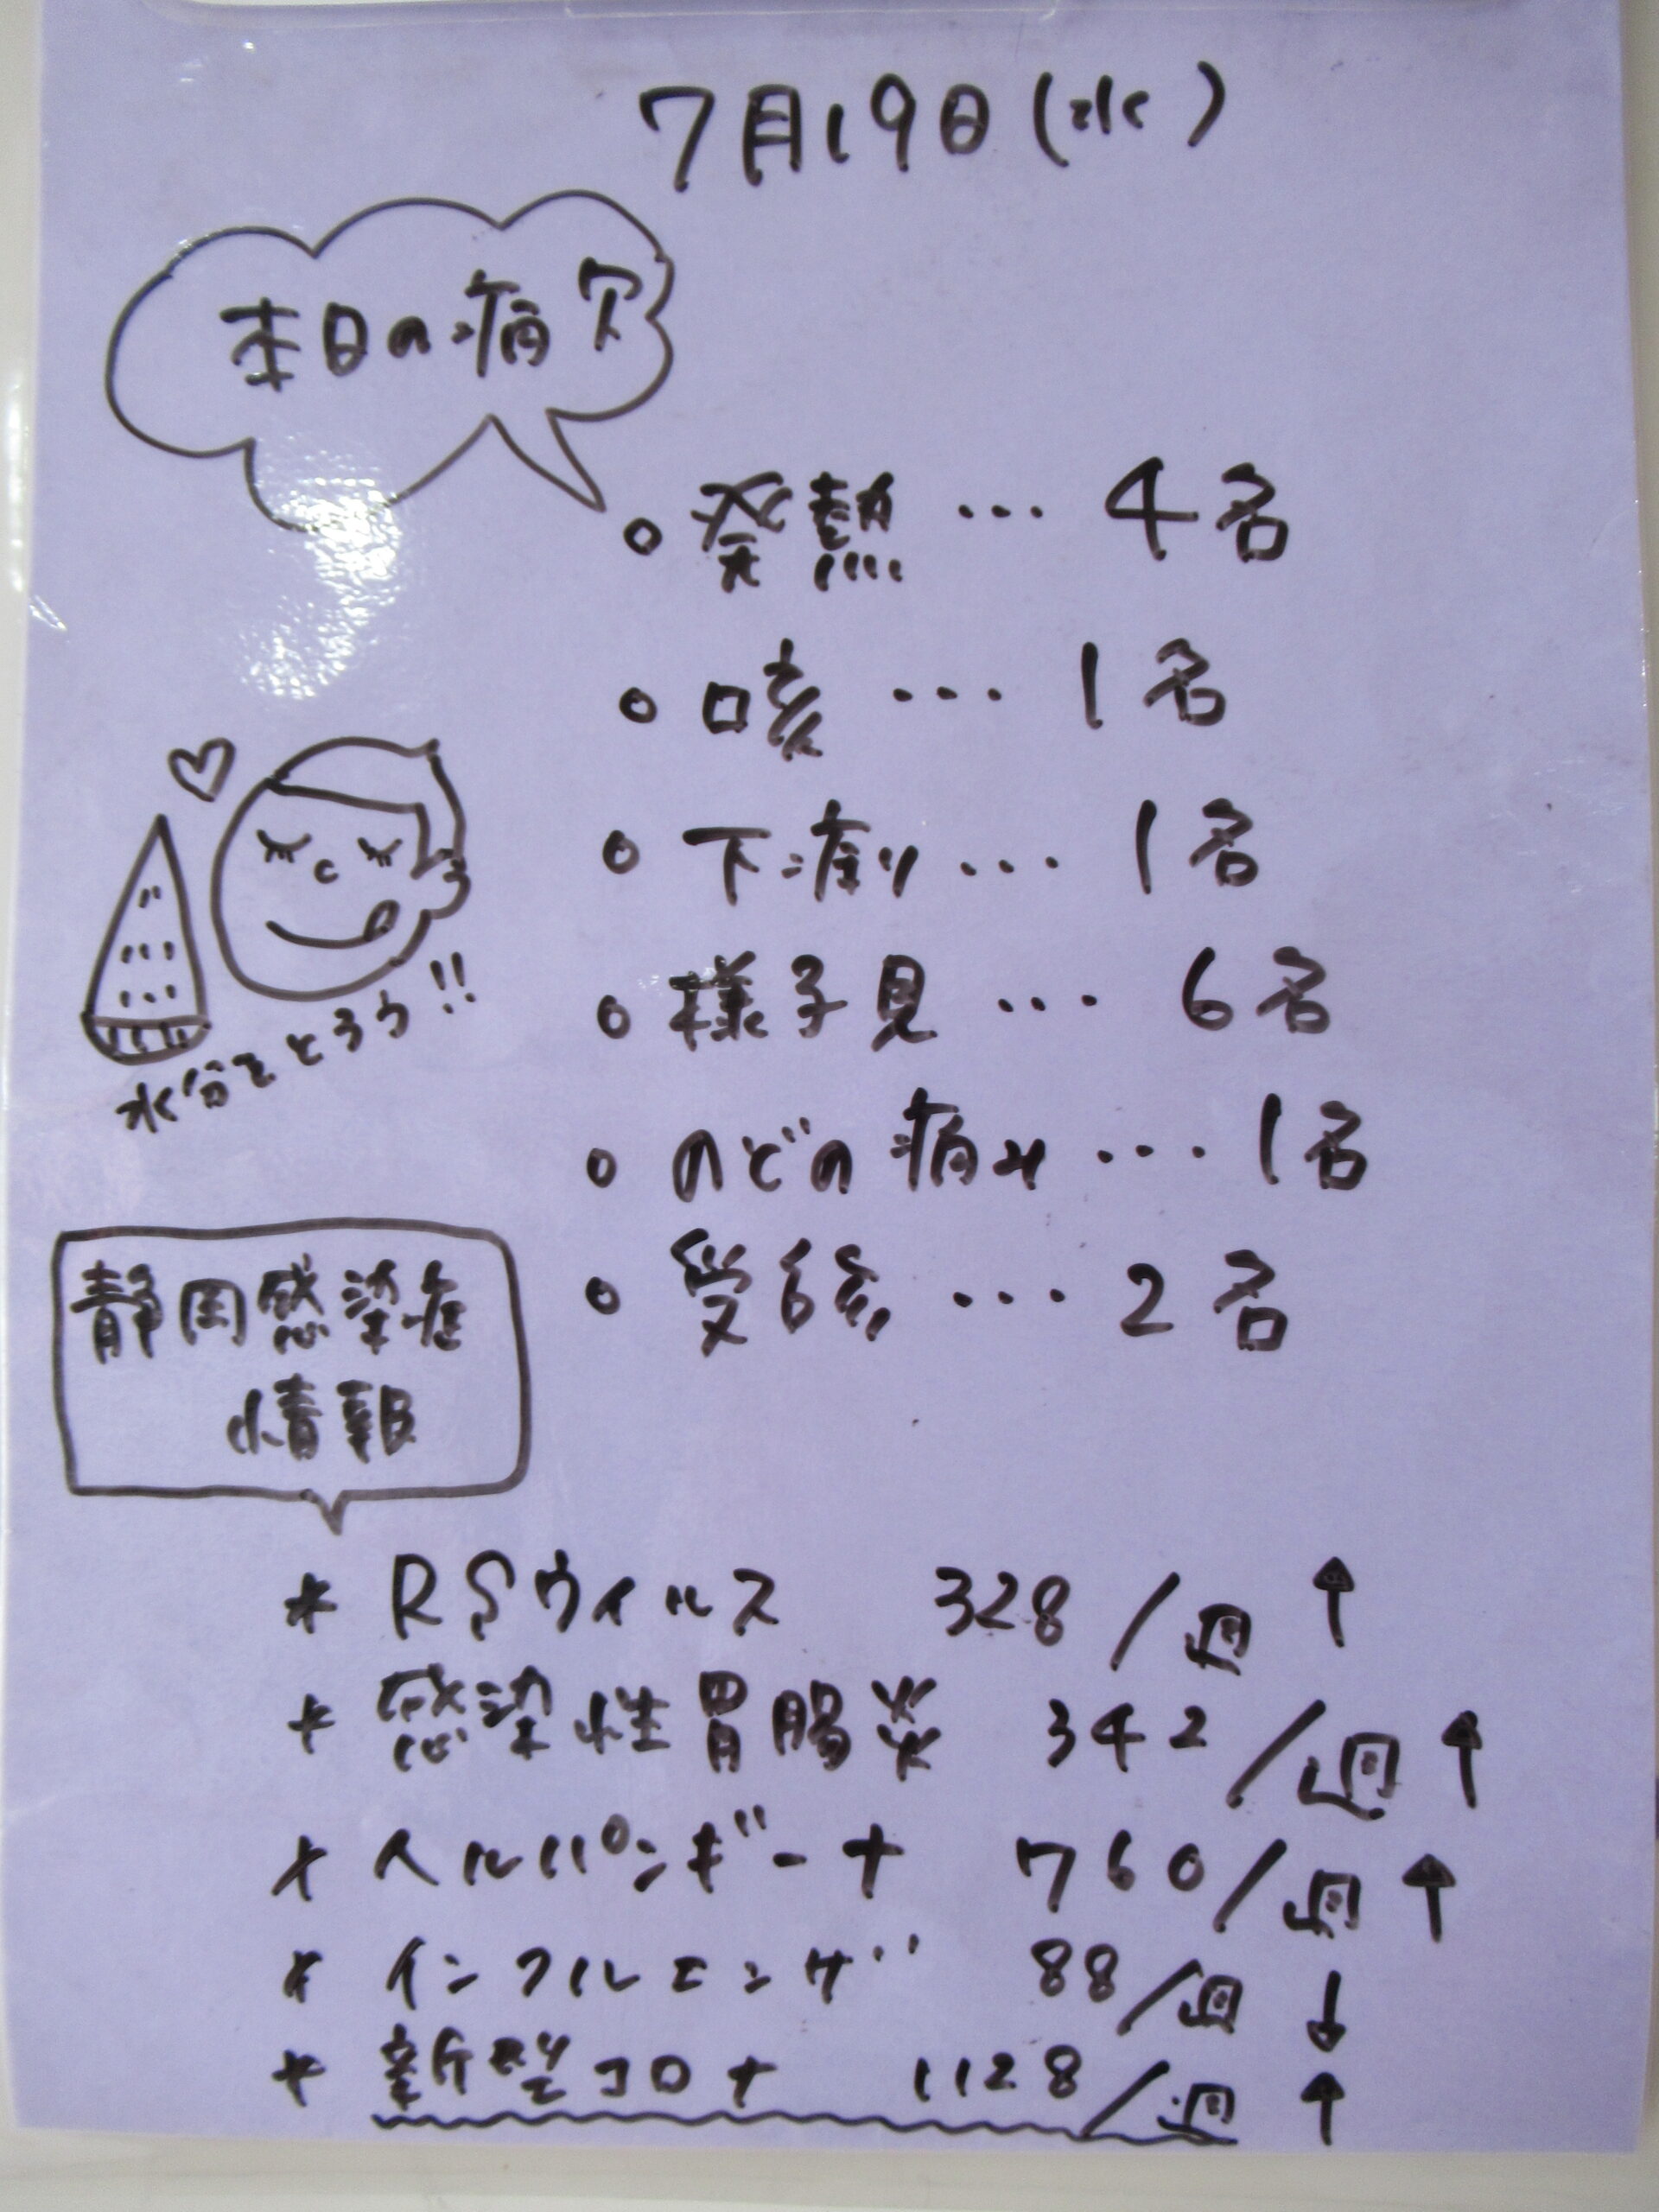 7月19日(水)
本日の病欠
○ 発熱 … 4名
○ 咳 … 1名
○ 下痢 … 1名
○ 様子見 … 6名
○ のどの痛み … 1名
○ 受診 … 2名
水分をとろう!!
静岡感染症
情報
* RSウィルス 328/週 ↑
* 感染性胃腸炎 342/週 ↑
* ヘルパンギーナ 760/週 ↑
* インフルエンザ 88/週 ↓
* 新型コロナ 1128/週 ↑